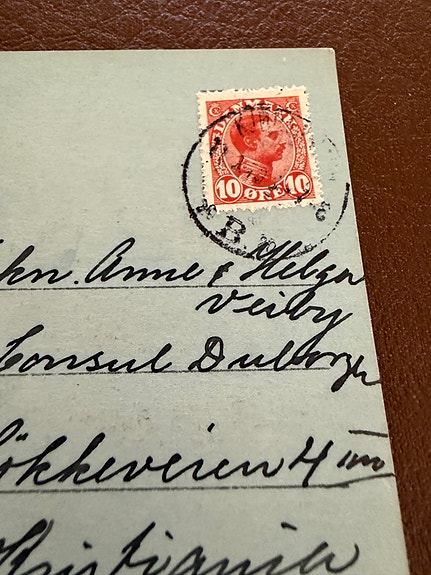 DANMARK
10 ØRE 10
KJØB
B.
kn. Anne & Helga
Veiby
Consul Duborgh
Løkkeveien 4 III
Kristiania